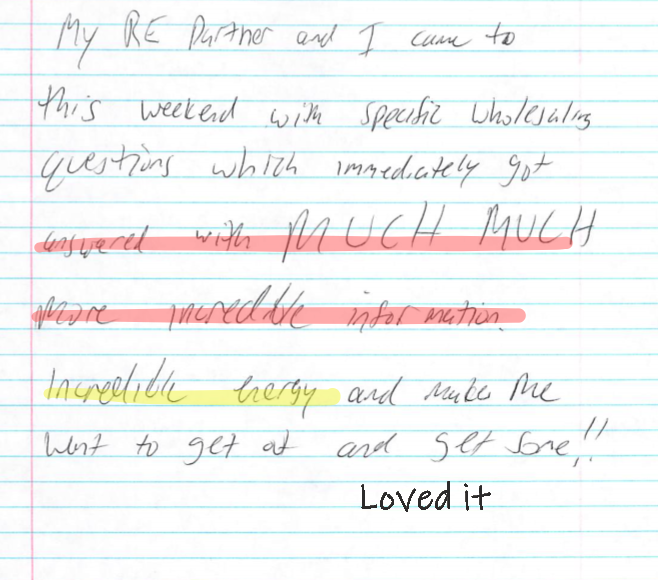 My RE Partner and I came to
this weekend with specific wholesaling
questions which immediately got
answered with MUCH MUCH
more incredible information.
Incredible energy and makes me
want to get at and get some!!
Loved it